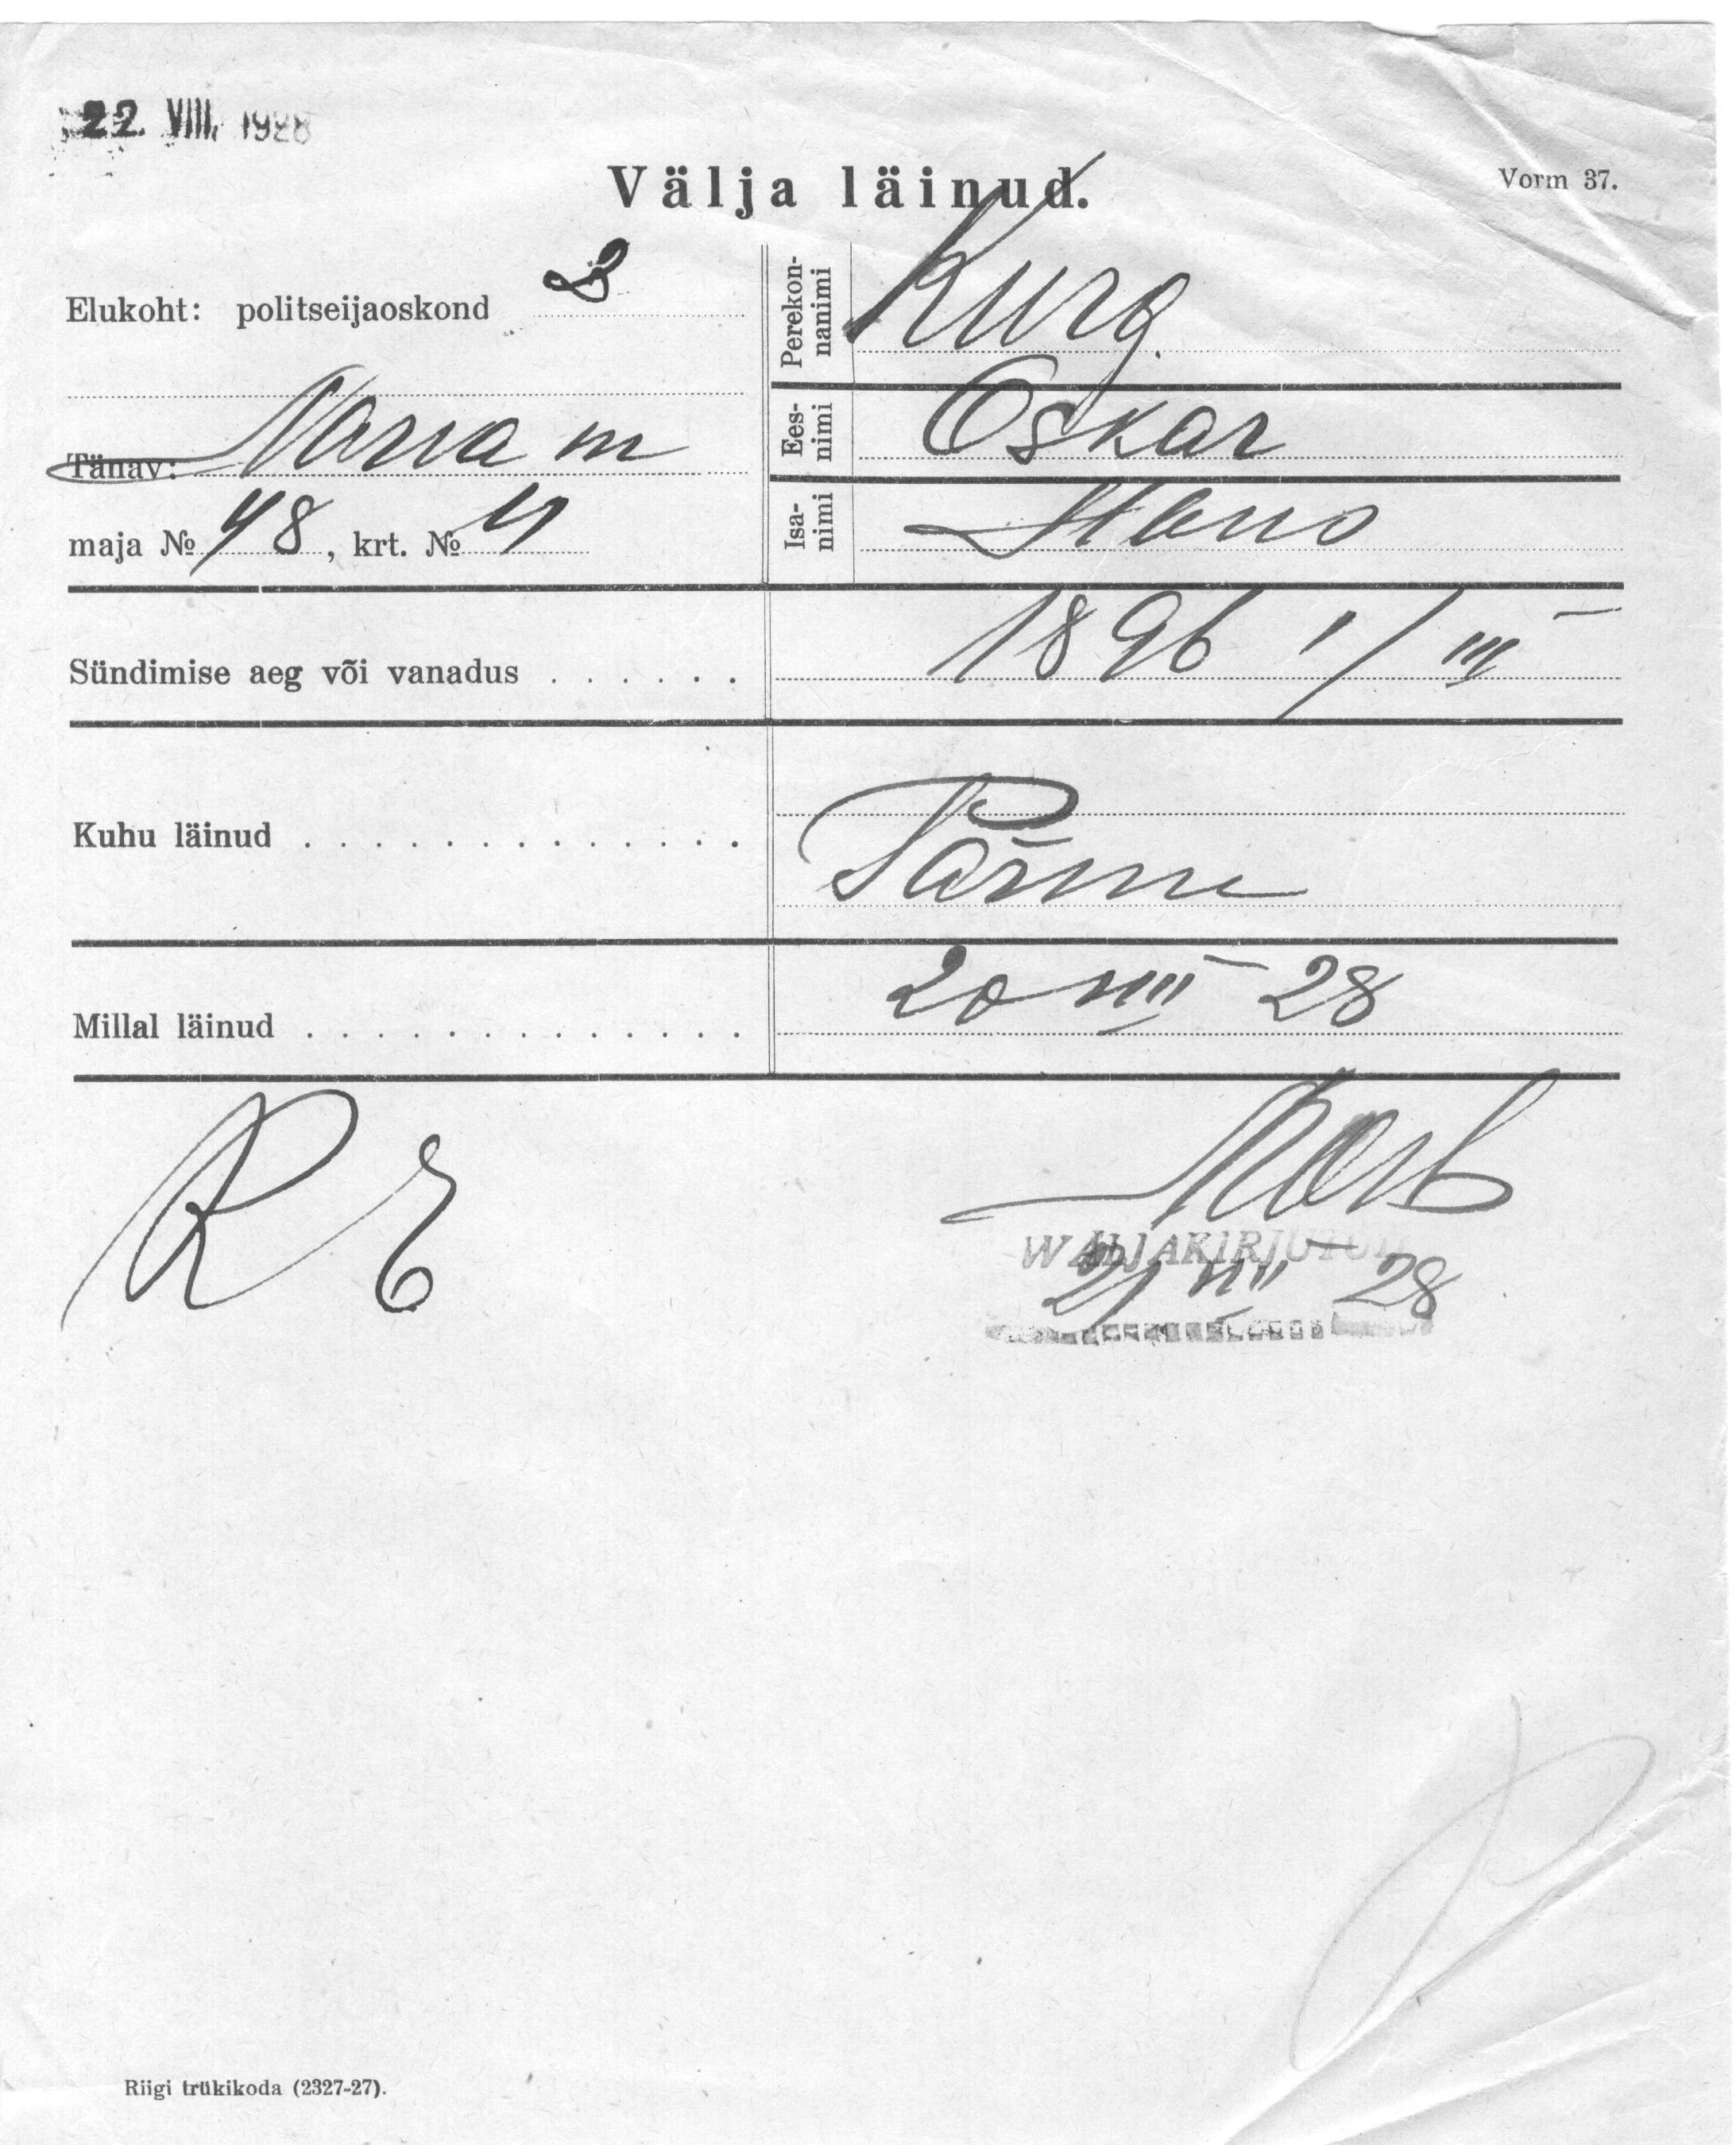 22. VIII. 1928
Välja läinud.
Vorm 37.
Elukoht: politseijaoskond 3
Tänav: Narva m
maja № 48, krt. № 4
Perekon-
nanimi
Kurg.
Ees-
nimi
Oskar
Isa-
nimi
Hans
Sündimise aeg või vanadus . . . . . .
1896 1/III
Kuhu läinud . . . . . . . . . . . . .
Pärnu
Millal läinud . . . . . . . . . . . . .
20 VIII 28
WÄLJAKIRJUTUD
21 VIII 28
Riigi trükikoda (2327-27).